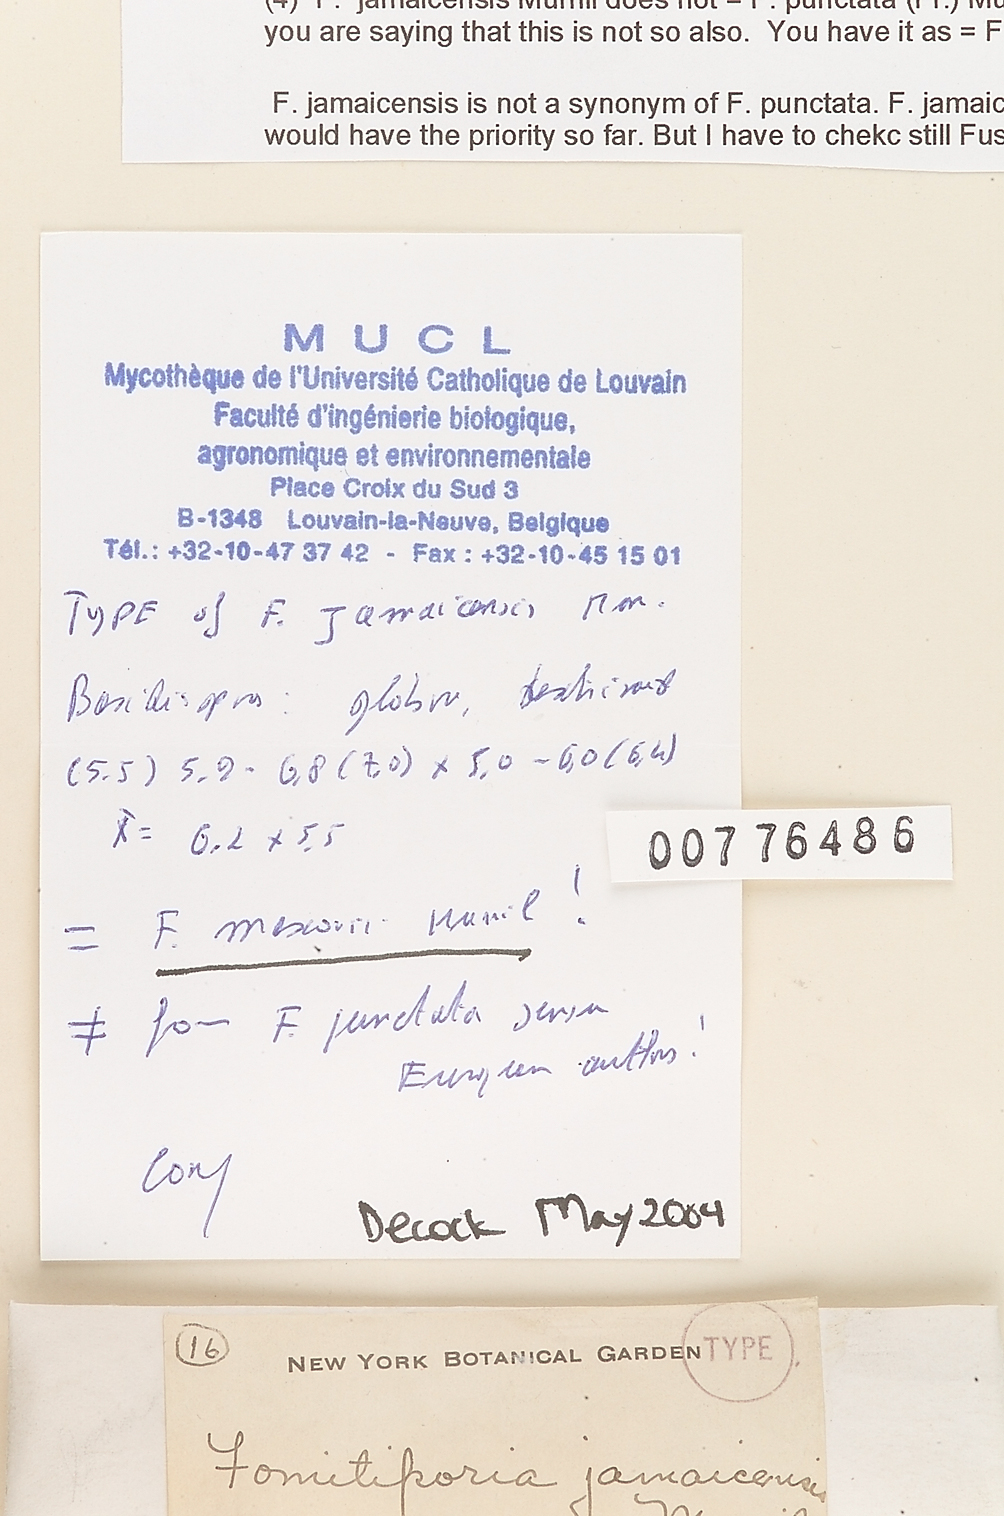 (4) F. jamaicensis Murrill does not = F. punctata (Fr.) Mu
you are saying that this is not so also. You have it as = F
F. jamaicensis is not a synonym of F. punctata. F. jamaic
would have the priority so far. But I have to chekc still Fus
M U C L
Mycothèque de l'Université Catholique de Louvain
Faculté d'ingénierie biologique,
agronomique et environnementale
Place Croix du Sud 3
B-1348 Louvain-la-Neuve, Belgique
Tél.: +32-10-47 37 42 - Fax : +32-10-45 15 01
TYPE of F. Jamaicensis Mur.
Basidiospores: globose, dextrinoid
(5.5) 5.9 - 6,8 (7,0) x 5,0 - 6,0 (6,4)
x̄ = 6.2 x 5,5
00776486
= F. Murril !
≠ from F. punctata sensu
European authors!
Cony
Decock May 2004
16
NEW YORK BOTANICAL GARDEN
TYPE
Fomitiporia jamaicensis